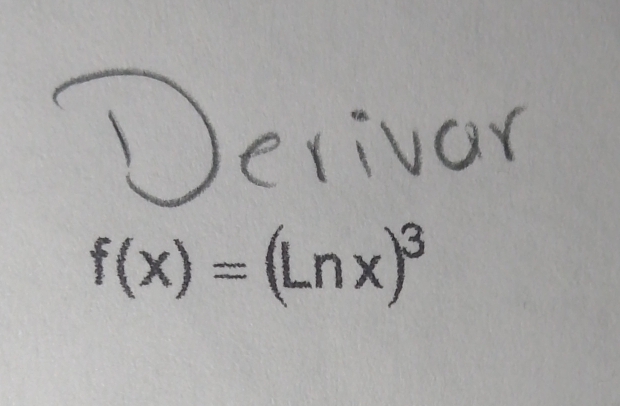 Derivar
f(x) = (Ln x)³